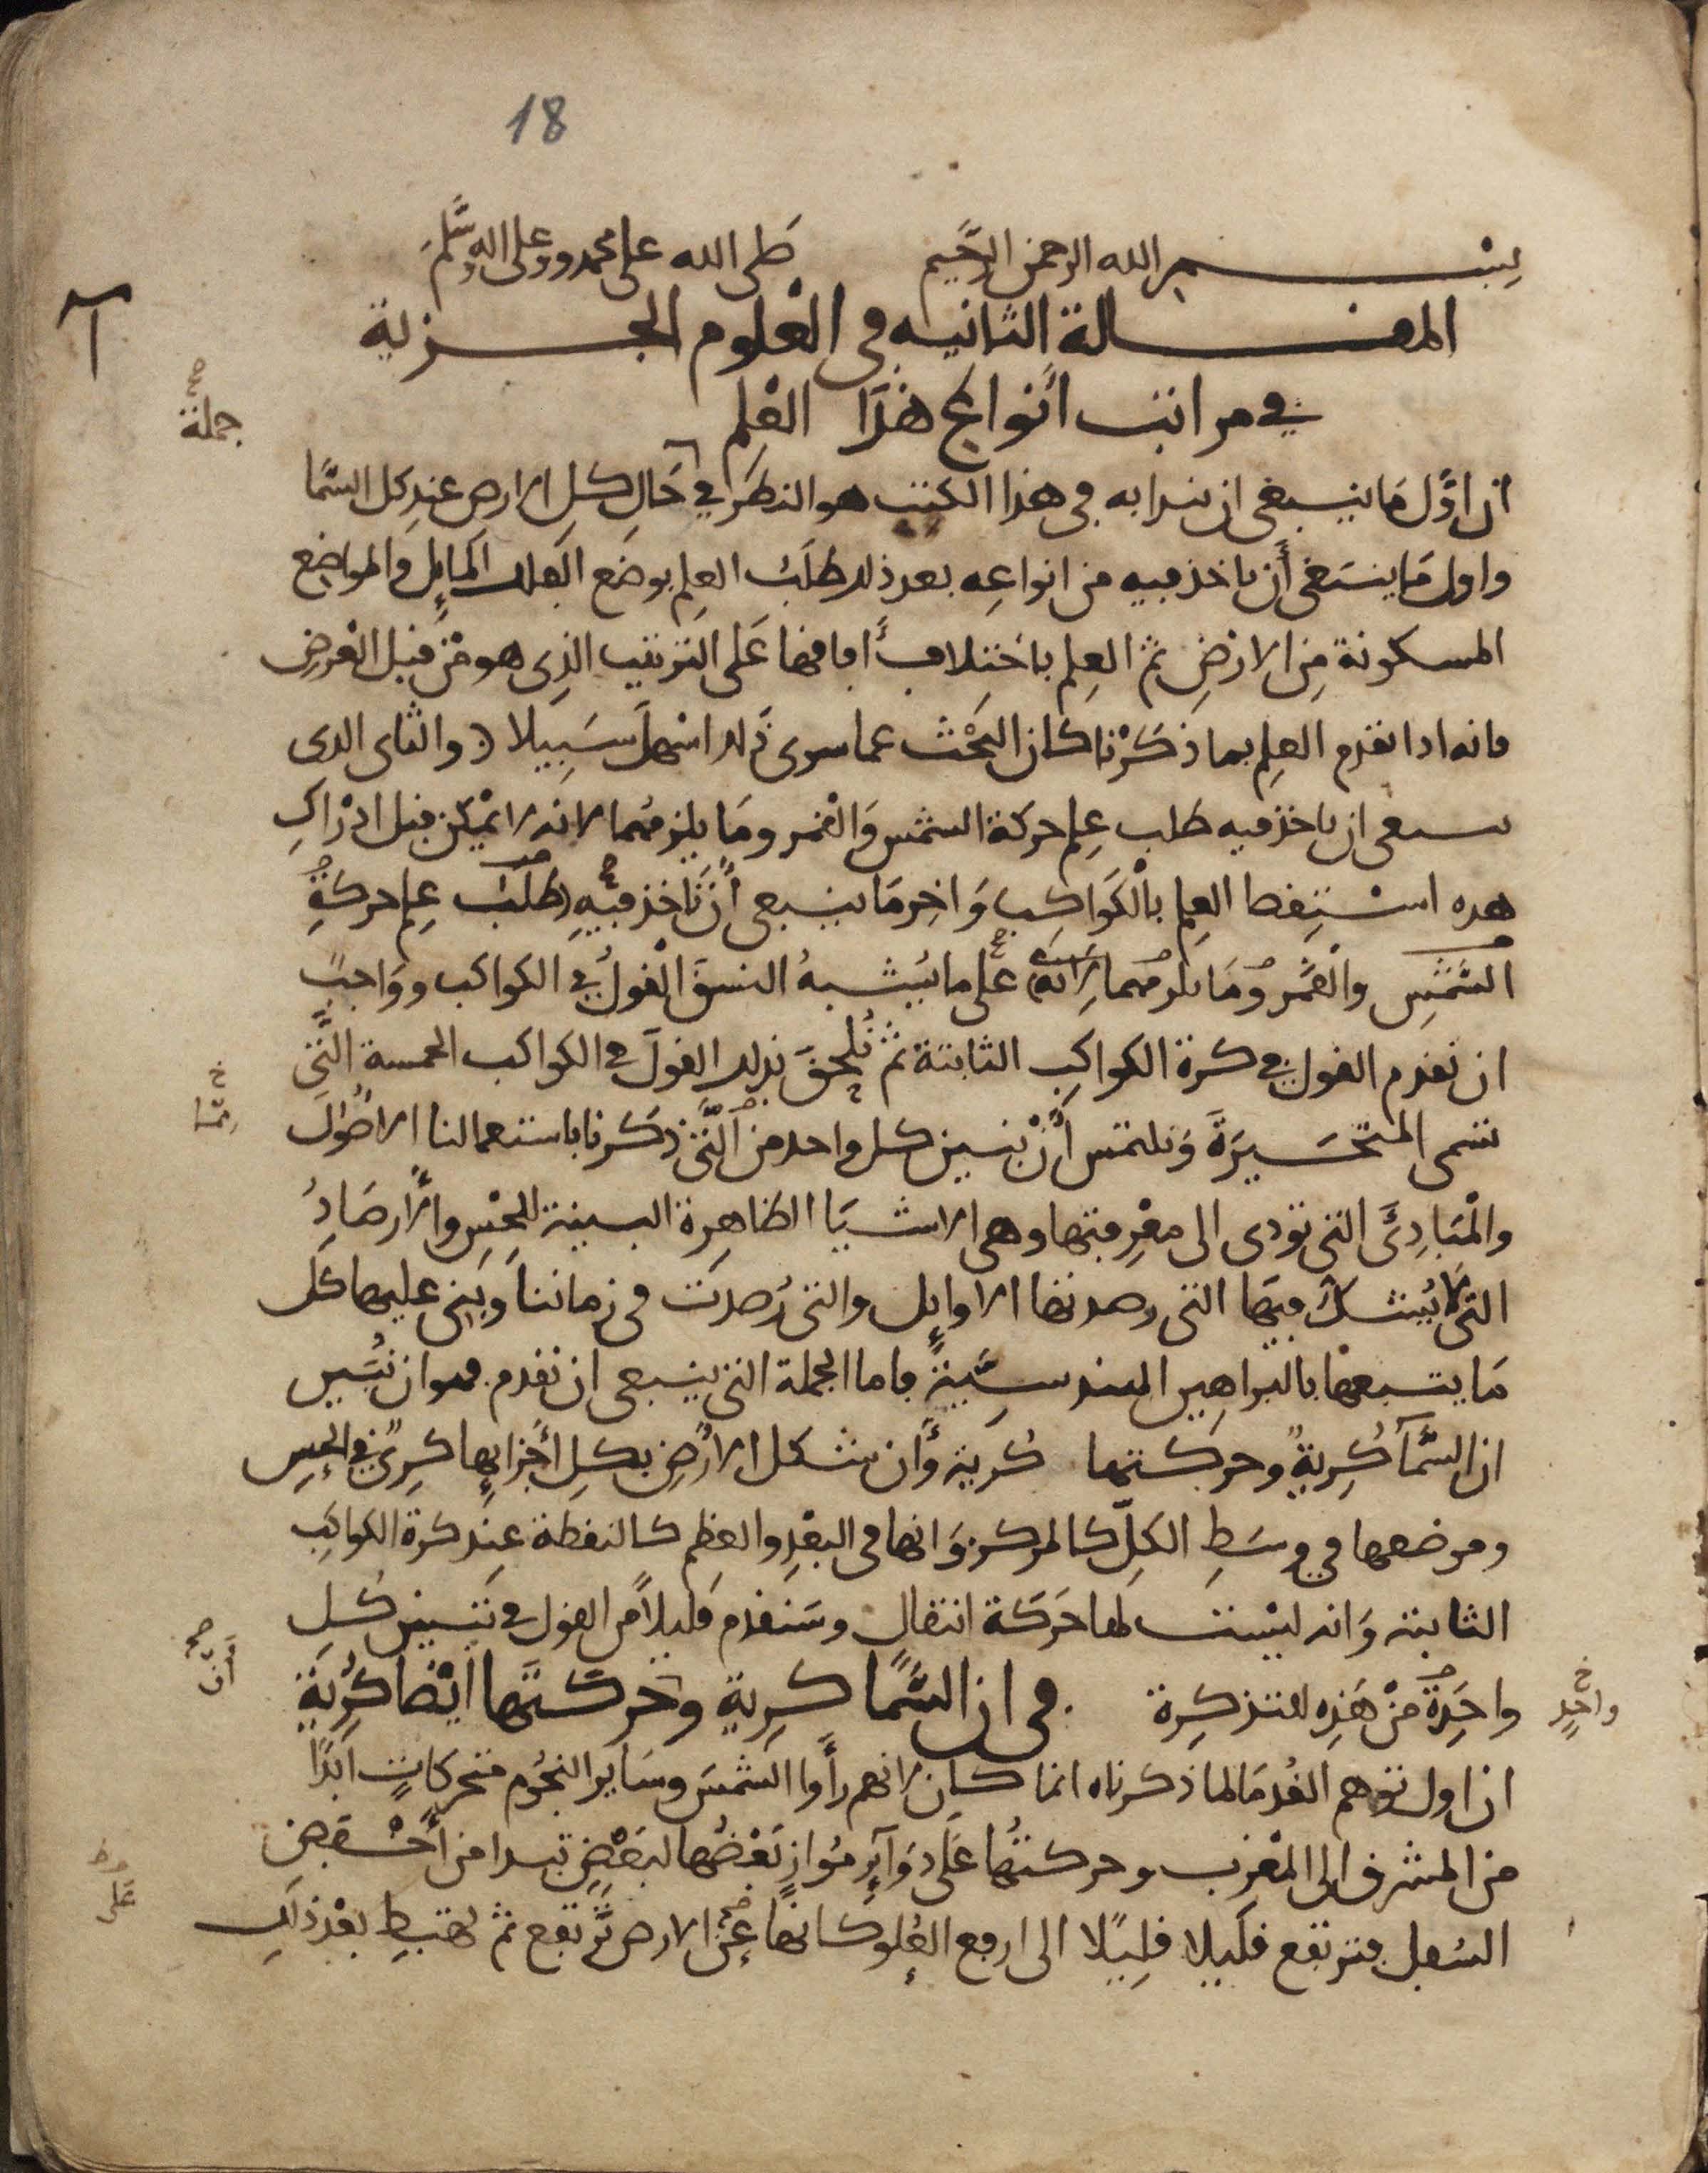 18
بسم الله الرحمن الرحيم صلى الله على محمد وعلى اله وسلم
المقالة الثانيه في العلوم الجزية
في مراتب أنواع هذا العلم
جملة
ان اوّل ما ينبغي ان نبدا به في هذا الكتب هو النظر في حال كل الارض عند كل السما
واول ما ينبغي أن ناخذ فيه من انواعه بعد ذلك طلب العلم بوضع الفلك المايل والمواضع
المسكونة من الارض ثم العلم باختلاف أافاقها على الترتيب الذي هو من قبل العرض
فانه اذا تقدم العلم بما ذكرنا كان البحث عما سوى ذلك اسهل سبيلا والثاني الذي
ينبغي ان ناخذ فيه طلب علم حركة الشمس والقمر وما يلزمهما لانه لا يمكن قبل ادراك
هذه استقصا العلم بالكواكب واخر ما ينبغي أن ناخذ فيه طلب علم حركة
الشمس والقمر وما يلزمهما لانه على ما يشبه النسق القول في الكواكب وواجب
ان نقدم القول في كرة الكواكب الثابتة ثم نلحق بذلك القول في الكواكب الخمسة التي
تسمى المتحيرة ونلتمس أن نبين كل واحد من التي ذكرنا باستعمالنا الاصول
والمبادئ التي تودي الى معرفتها وهي الاشيا الظاهرة البينة للحس والارصاد
التي لا يشك فيها التي رصدتها الاوايل والتي رصدت في زماننا ونبني عليها كل
ما يتبعها بالبراهين الهندسية فاما الجملة التي ينبغي ان نقدم فهو ان نبين
ان السما كرية وحركتها كرية وأن شكل الارض بكل أجزايها كري في الحس
وموضعها في وسط الكل كالمركز وانها في البعد والعظم كالنقطة عند كرة الكواكب
الثابته وانه ليست لها حركة انتقال وسنقدم قليلا من القول في تبيين كل
أن صح
واحدة من هذه للتذكرة في ان السما كرية وحركتها ايضا كرية
واحد
ان اول توهم القدما لما ذكرناه انما كان لانهم رأوا الشمس وساير النجوم متحركات ابدا
من المشرق الى المغرب وحركتها على دواير مواز بعضها لبعض تبدا من أخفض
على
السفل فترتفع قليلا قليلا الى ارفع العلو كانها عن الارض ترتفع ثم تهبط بعد ذلك